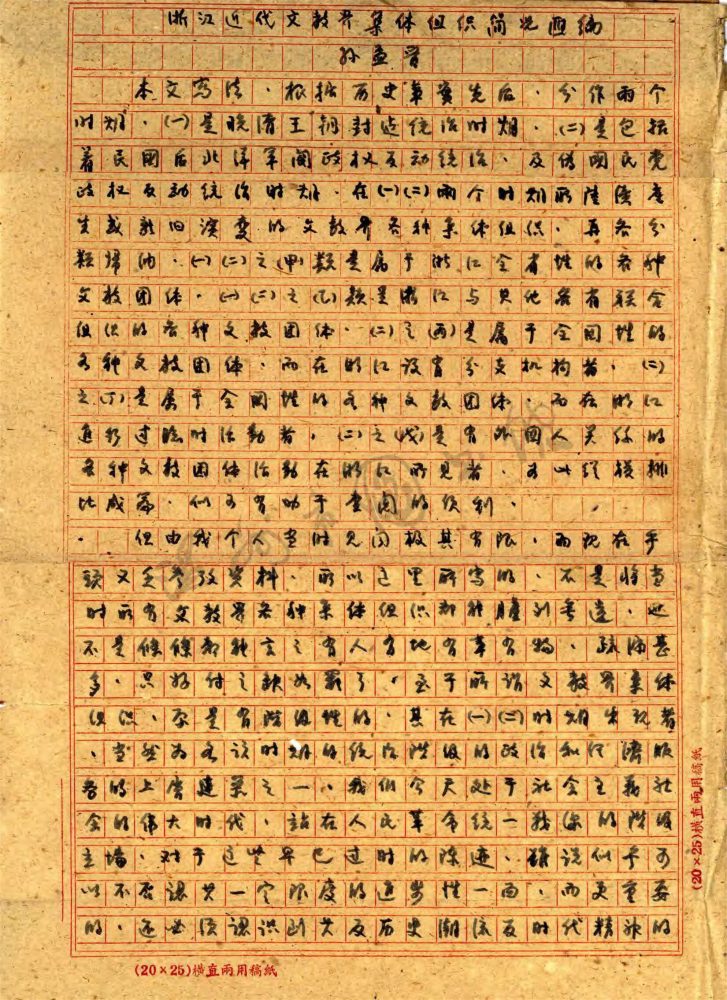 浙江近代文教界集体组织简况汇编
孙孟晋
本文写法、根据历史事实先后、分作两个
时期、(一)是晚清王朝封建统治时期、(二)是包括
着民国后北洋军阀政权反动统治、及伪国民党
政权反动统治时期、在(一)(二)两个时期所陆续产
生或新旧演变的文教界各种集体组织、再各分
类归纳、(一)(二)之(甲)类是属于浙江全省性的各种
文教团体、(一)(二)之(乙)类是浙江与其他各省联合
组织的各种文教团体、(二)之(丙)是属于全国性的
各种文教团体、而在浙江设有分支机构者、(二)
之(丁)是属于全国性的各种文教团体、而在浙江
进行过临时活动者、(二)之(戊)是有外国人关系的
各种文教团体活动在浙江所见者、可以经横排
比成篇、似可有助于查阅的便利、
但由我个人当时见闻极其有限、而现在手
头又乏参考资料、所以这里所写的、不是将当
时所有文教界各种集体组织都能胪列无遗、也
不是条条都能言之有人有地有事有物、疏漏甚
多、只好付之缺如罢了、至于所谓文教界集体
组织、原是有阶级性的、其在(一)(二)时期出现者
、当然为各该时期的统治阶级的政治和经济服
务的上层建筑之一、我们今天处于社会主义社
会的伟大时代、站在人民革命统一战线的阶级
立场、对于这些早已过时的陈迹、虽说似乎可
以不否认其一定限度的进步性一面、而更重要
的、还必须认识到其反历史潮流反时代精神的
(20×25)横直兩用稿紙
(20×25)横直兩用稿紙